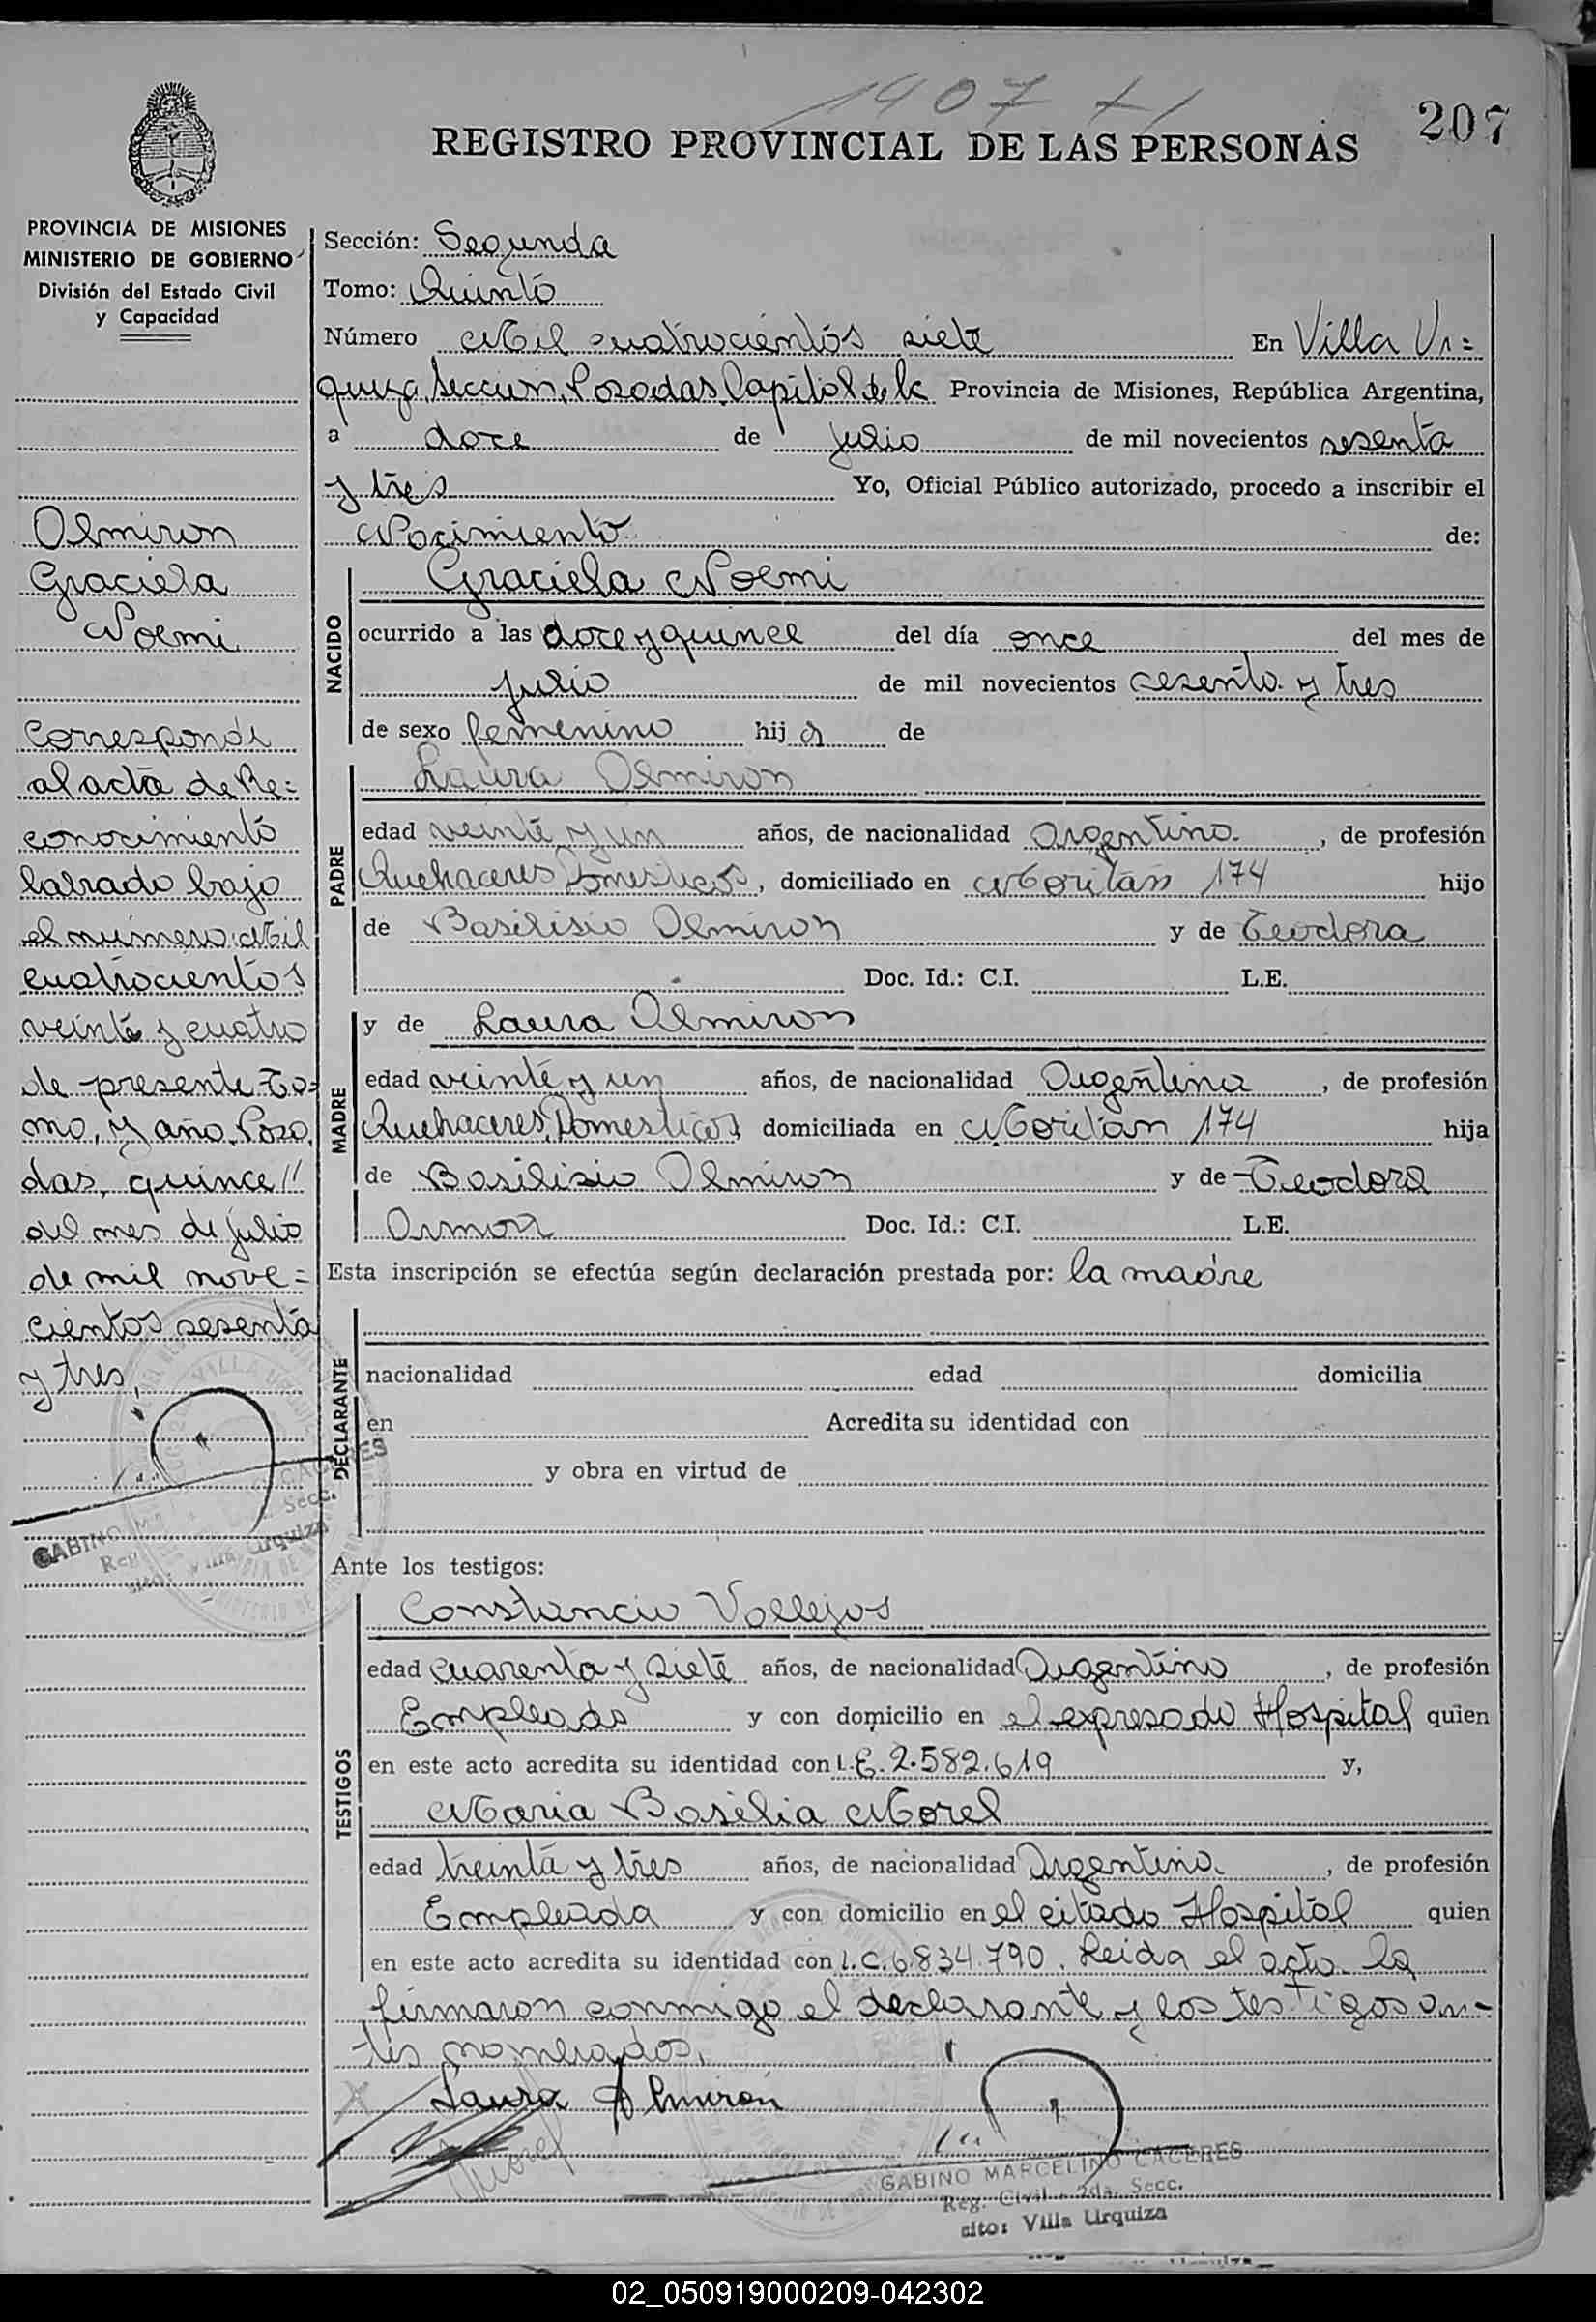 1407
207
REGISTRO PROVINCIAL DE LAS PERSONAS
PROVINCIA DE MISIONES
MINISTERIO DE GOBIERNO
División del Estado Civil
y Capacidad
Almiron
Graciela
Noemi
Corresponde
al acta de Re=
conocimiento
labrado bajo
el número: Mil
cuatrocientos
veinte y cuatro
de presente To=
mo, y año, Posa,
das, quince //
del mes de julio
de mil nove=
cientos sesenta
y tres,
Sección: Segunda
Tomo: Quinto
Número Mil cuatrocientos siete En Villa Ur=
quiza, Seccion, Posadas, Capital de la Provincia de Misiones, República Argentina,
a doce de julio de mil novecientos sesenta
y tres Yo, Oficial Público autorizado, procedo a inscribir el
Nacimiento de:
NACIDO
Graciela Noemi
ocurrido a las doce y quince del día once del mes de
julio de mil novecientos cesenta y tres
de sexo femenino hij a de
PADRE
Laura Almiron
edad veinte y un años, de nacionalidad Argentina, de profesión
Quehaceres Domesticos, domiciliado en Moritan 174 hijo
de Basilisio Almiron y de Teodora
Doc. Id.: C.I. L.E.
MADRE
y de Laura Almiron
edad veinte y un años, de nacionalidad Argentina, de profesión
Quehaceres, Domesticos domiciliada en Moritan 174 hija
de Basilisio Almiron y de Teodora
Doc. Id.: C.I. L.E.
Esta inscripción se efectúa según declaración prestada por: la madre
DECLARANTE
nacionalidad edad domicilia
en Acredita su identidad con
y obra en virtud de
Ante los testigos:
TESTIGOS
Constancio Vallejos
edad cuarenta y siete años, de nacionalidad Argentino, de profesión
Empleado y con domicilio en el expresado Hospital quien
en este acto acredita su identidad con L.E. 2.582.619 y,
Maria Basilia Morel
edad treinta y tres años, de nacionalidad Argentina, de profesión
Empleada y con domicilio en el citado Hospital quien
en este acto acredita su identidad con L.C. 6.834.790. Leida el acta la
firmaron conmigo el declarante y los testigos an=
tes nombrados,
Laura Almirón
Morel
GABINO MARCELINO CACERES
Reg. Civil - 2da. Secc.
sito: Villa Urquiza
02_050919000209-042302